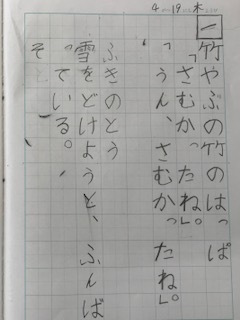 4 19 木
一
竹やぶの竹のはっぱ
「さむかったね。」
「うん、さむかったね。」
ふきのとう
雪をどけようと、ふんば
っている。
そ